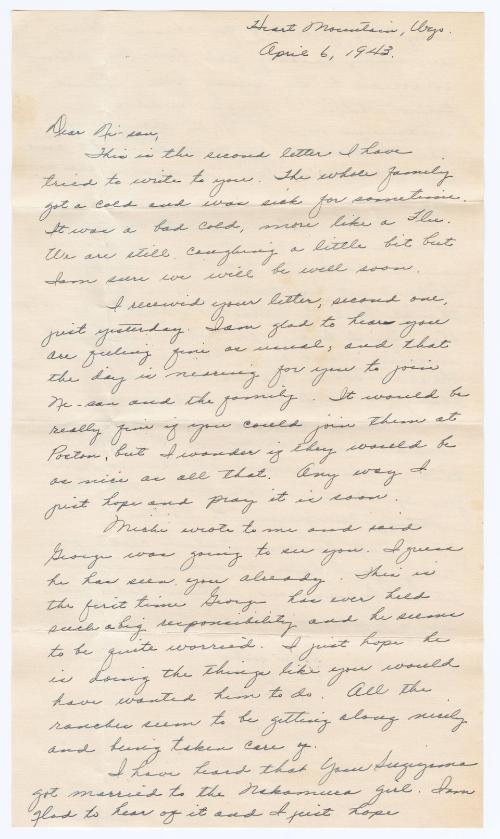 Heart Mountain, Wyo.
April 6, 1943.
Dear Ni-san,
This is the second letter I have
tried to write to you. The whole family
got a cold and was sick for sometime.
It was a bad cold, more like a Flu.
We are still coughing a little bit but
I am sure we will be well soon.
I received your letter, second one,
just yesterday. I am glad to hear you
are feeling fine as usual, and that
the day is nearing for you to join
Ne-san and the family. It would be
really fine if you could join them at
Poston, but I wonder if they would be
as nice as all that. Any way I
just hope and pray it is soon.
Michi wrote to me and said
George was going to see you. I guess
he has seen you already. This is
the first time George has ever held
such a big responsibility and he seems
to be quite worried. I just hope he
is doing the things like you would
have wanted him to do. All the
ranches seem to be getting along nicely
and being taken care of.
I have heard that Sugiyama
got married to the Nakamura girl. I am
glad to hear of it and I just hope